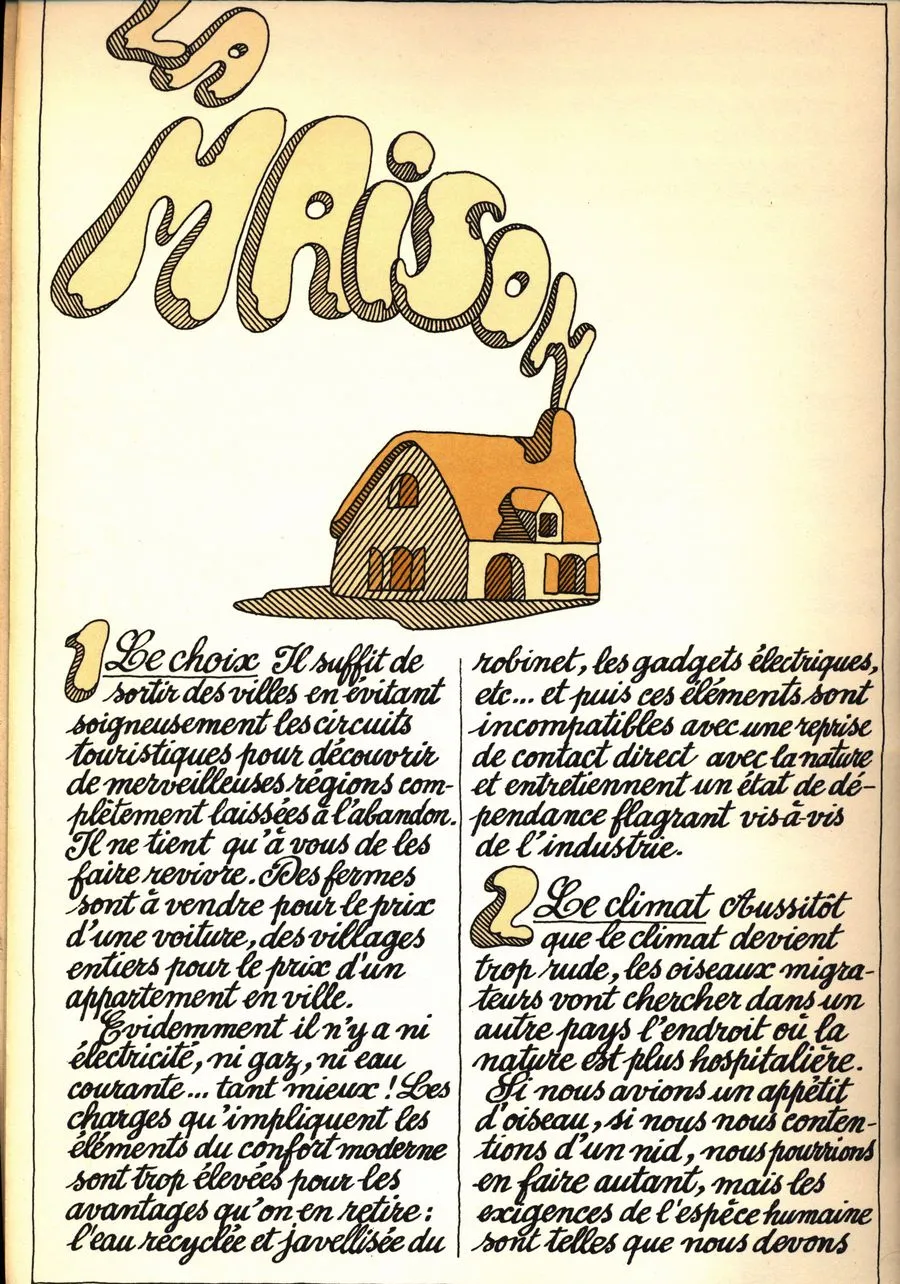 LA
MAiSON
1 Le choix Il suffit de
sortir des villes en évitant
soigneusement les circuits
touristiques pour découvrir
de merveilleuses régions com-
plètement laissées à l'abandon.
Il ne tient qu'à vous de les
faire revivre. Des fermes
sont à vendre pour le prix
d'une voiture, des villages
entiers pour le prix d'un
appartement en ville.
Evidemment il n'y a ni
électricité, ni gaz, ni eau
courante... tant mieux ! Les
charges qu'impliquent les
éléments du confort moderne
sont trop élevées pour les
avantages qu'on en retire :
l'eau recyclée et javellisée du
robinet, les gadgets électriques,
etc... et puis ces éléments sont
incompatibles avec une reprise
de contact direct avec la nature
et entretiennent un état de dé-
pendance flagrant vis-à-vis
de l'industrie.
2 Le climat Aussitôt
que le climat devient
trop rude, les oiseaux migra-
teurs vont chercher dans un
autre pays l'endroit où la
nature est plus hospitalière.
Si nous avions un appétit
d'oiseau, si nous nous conten-
tions d'un nid, nous pourrions
en faire autant, mais les
exigences de l'espèce humaine
sont telles que nous devons